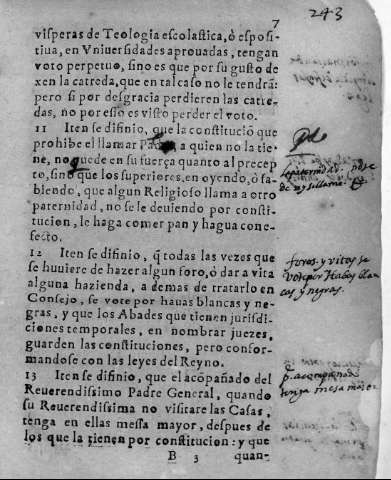 7
243
visperas de Teologia escolastica, ò esposi-
tiua, en Vniuersidades aprouadas, tengan
voto perpetuo, sino es que por su gusto de
xen la catreda, que en tal caso no le tendrà:
pero si por desgracia perdieren las catre-
das, no por esso es visto perder el voto.
11 Iten se difinio, que la constituciõ que
prohibe el llamar a quien no la tie-
ne, no quede en su fuerça quanto al precep
to, sino que los superiores, en oyendo, ò sa-
biendo, que algun Religioso llama a otro
paternidad, no se le deuiendo por consti-
tucion, le haga comer pan y hagua con e-
fecto.
12 Iten se difinio, q̃ todas las vezes que
se huuiere de hazer algun foro, ò dar a vita
alguna hazienda, a demas de tratarlo en
Consejo, se vote por hauas blancas y ne-
gras, y que los Abades que tienen jurisdi-
ciones temporales, en nombrar juezes,
guarden las constituciones, pero confor-
mandose con las leyes del Reyno.
foros. y vitas se
voten por Habas blan
cas y negras.
13 Iten se difinio, que el acõpañado del
Reuerendissimo Padre General, quando
su Reuerendissima no visitare las Casas,
tenga en ellas messa mayor, despues de
los que la tienen por constitucion: y que
tenga mesa maior
B 3 quan-